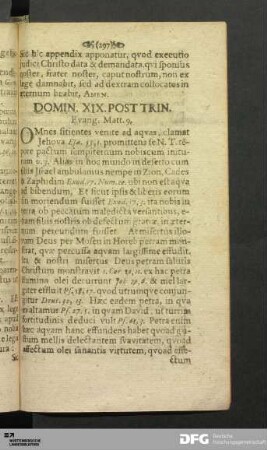 (297)
Sic h/c appendix apponatur, qvod executio
judici Christo data & demandata, qvi sponsus
noster, frater noster, caput nostrum, non ex
lege damnabit, sed ad dextram collocatos in
æternum beabit, AMEN.
DOMIN. XIX. POST TRIN.
Evang. Matt. 9.
OMnes sitientes venite ad aqvas, clamat
Jehova Esa. 55, 1. promittens se N. T.
pactum sempiternum nobiscum
v. 3. Alias in hoc mundo in deserto
Israel ambulamus nempe in Zion, Cades
Raphidim Exod. 17. Num. 20. ubi non est aqva
ad bibendum, Et sicut ipsis & liberis eorum
in moriendum fuisset Exod. 17, 3. ita nobis in
ob peccatum maledicta venientibus,
nostris ob defectum gratiæ, in æter-
num pereundum fuisset. Armisertus
Deus per Mosen in Horeb petram mon-
strat, qvæ percussa aqvam largissime effudit.
& nostri misertus Deus petram
Christum monstravit 1. Cor. 10, 11. ex hac petra
flumina olei decurrunt Job. 29, 6. & mel lar-
giter effluit Ps. 81, 17. qvod utrumqve conjun-
gitur Deut. 32, 13. Hæc eadem petra, in qva
exaltamur Ps. 27, 5. in qvam David, ut turrim
fortitudinis deduci vult Ps. 61, 3. Petra enim
hæc aqvam hanc effundens habet qvoad
mellis delectantem svavitatem, qvoad
affectum olei sanantis virtutem, qvoad effe-
ctum
DFG Deutsche
Forschungsgemeinschaft